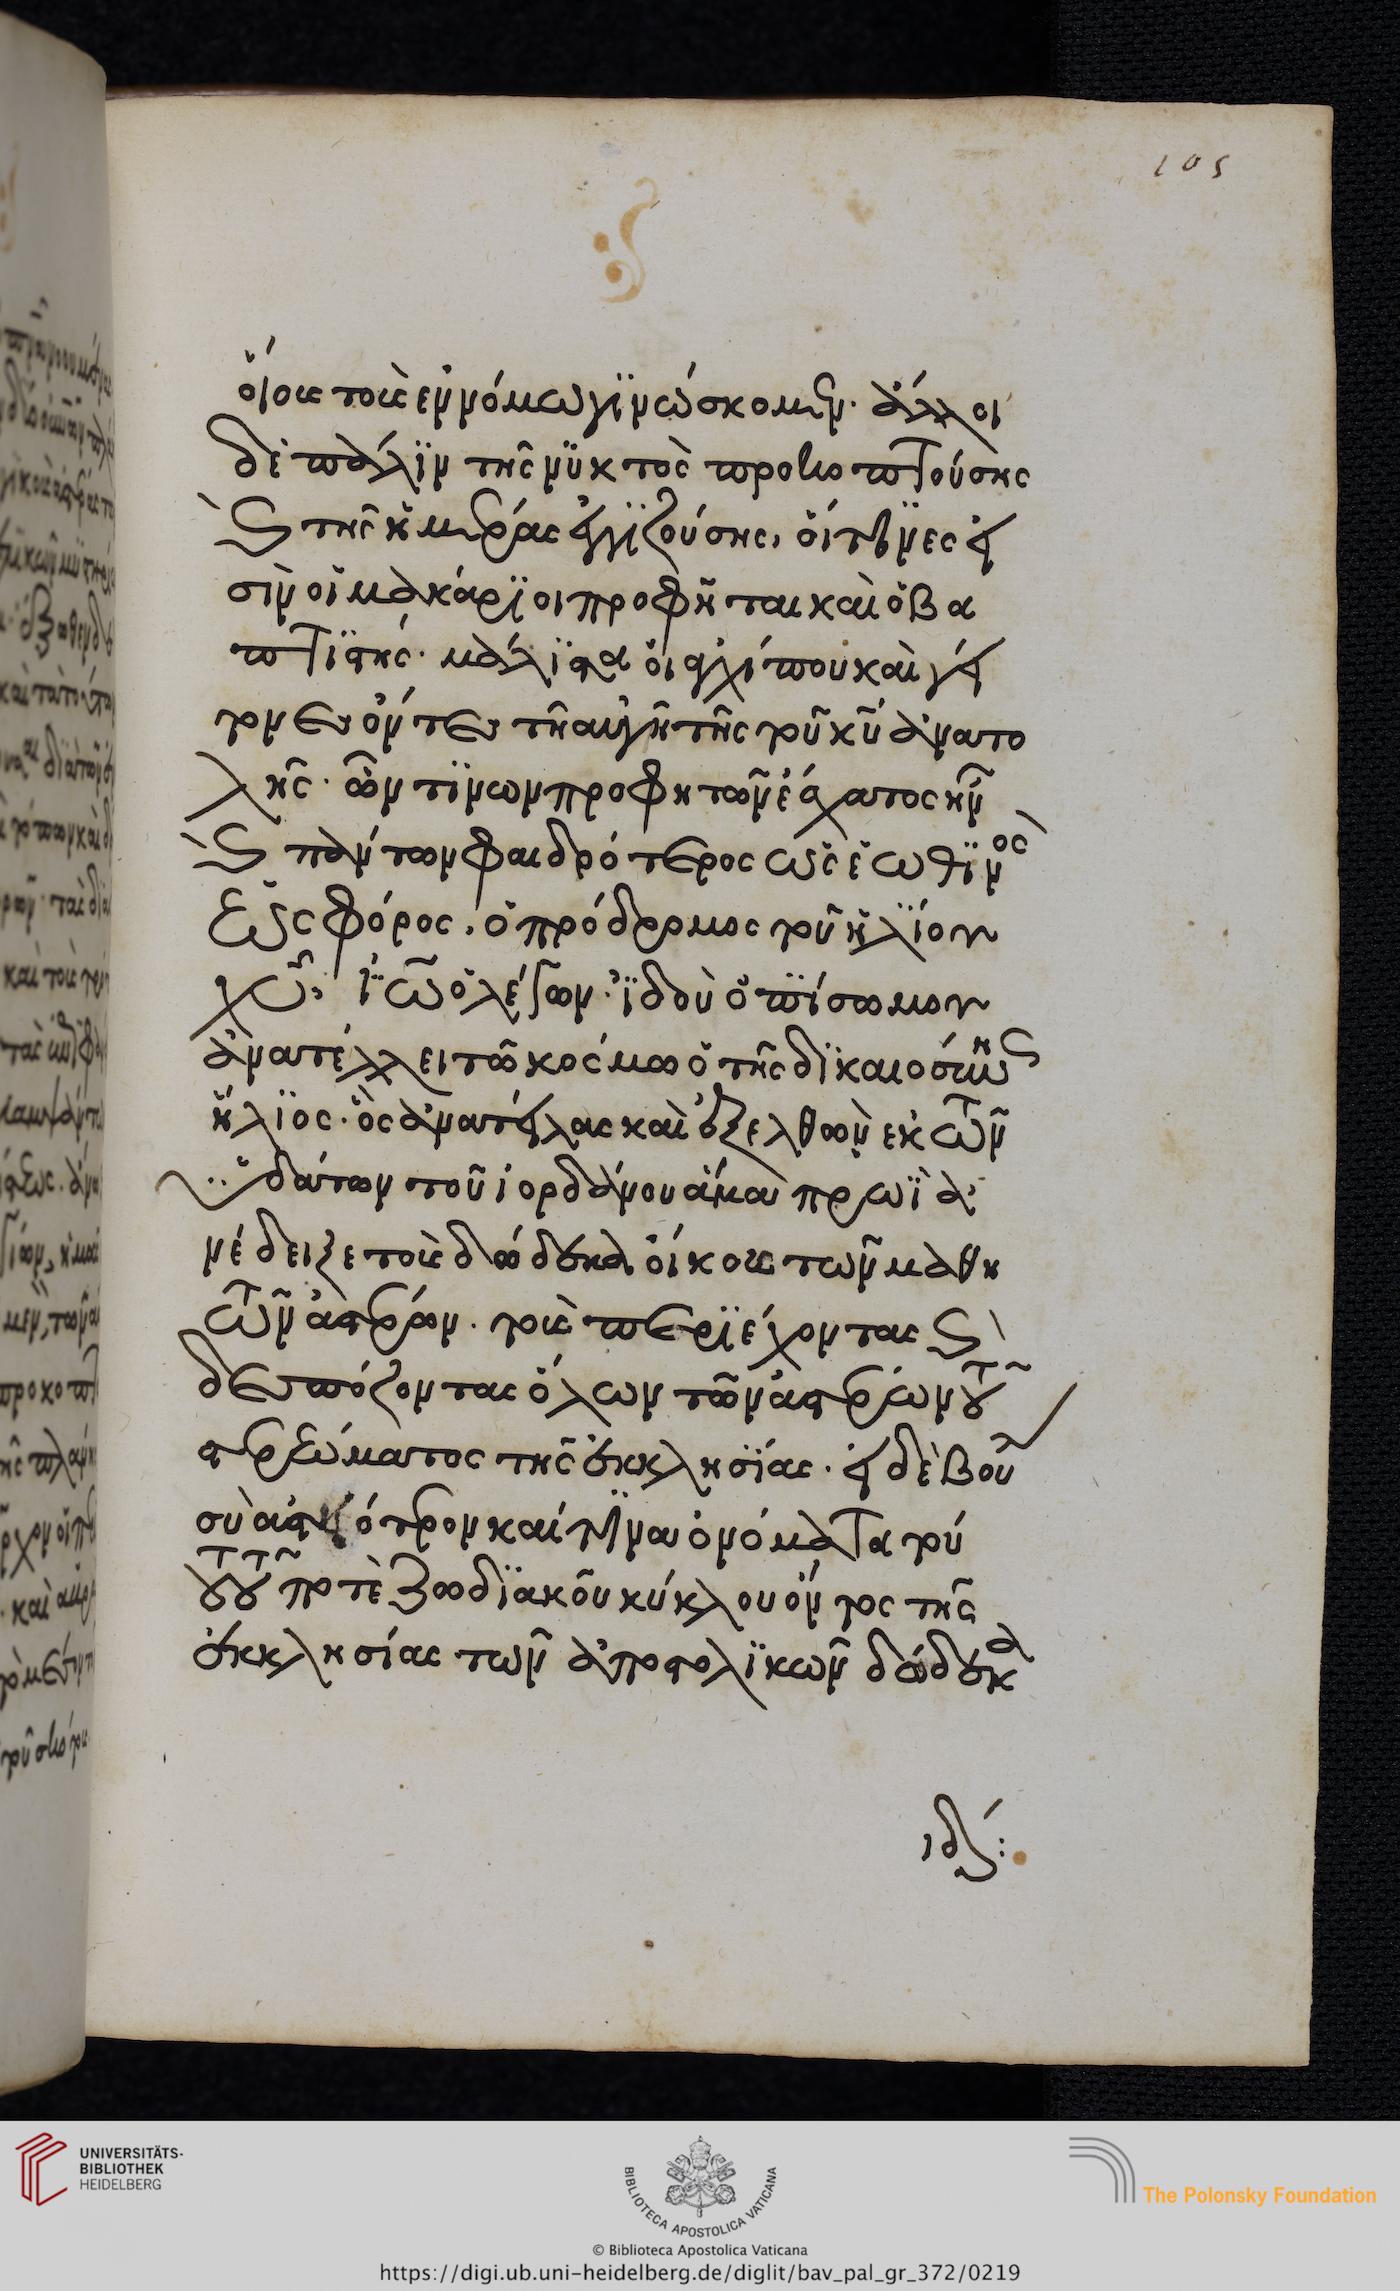 105
οἵοις τοῖς ἐν νόμω γινώσκομεν· ἄλλοι
δὲ πάλιν τῆς νϋκτὸς προκοπτούσης
καὶ τῆς ἡμέρας ἐγγϊζούσης, οἵτινες εἰ
σὶν οἱ μακάριοι προφῆται καὶ ὁ βα
πτϊστής· μάλϊστα οἱ
ὄντες τῆ αὐγῆ τῆς τοῦ κυ ἀνατο
λῆς· ὧν τϊνων προφητῶν ἔσχατος ἦν
καὶ πάντων φαιδρότερος ὡς ἑωθϊνὸς
ἑωσφόρος, ὁ πρόδρομος τοῦ ἡλΐου
χυ, ἰω ὁ λέγων· ἰδοὺ ὀπΐσω μου
ἀνατέλλει τῶ κόσμω ὁ τῆς δϊκαιοσύνης
ἥλϊος· ὃς ἀνατείλας καὶ ἐξελθὼν ἐκ τῶν
ὑδάτων τοῦ ἰορδάνου ἅμα πρωῒ ἀ
νέδειξε τοῖς δώδεκα οἴκοις τῶν μαθη
τῶν ἀστέρων· τοὺς περϊέχοντας καὶ
δεσπόζοντας ὅλων τῶν ἀστέρων τοῦ
στερεώματος τῆς ἐκκλησΐας· εἰ δὲ βού
καὶ τΐνα ὀνόματα τοῦ
τούτου ποτὲ ζωδϊακοῦ κύκλου ὄντος τῆς
ἐκκλησίας τῶν ἀποστολϊκῶν δώδεκα
UNIVERSITÄTS-
BIBLIOTHEK
HEIDELBERG
BIBLIOTECA APOSTOLICA VATICANA
The Polonsky Foundation
© Biblioteca Apostolica Vaticana
https://digi.ub.uni-heidelberg.de/diglit/bav_pal_gr_372/0219